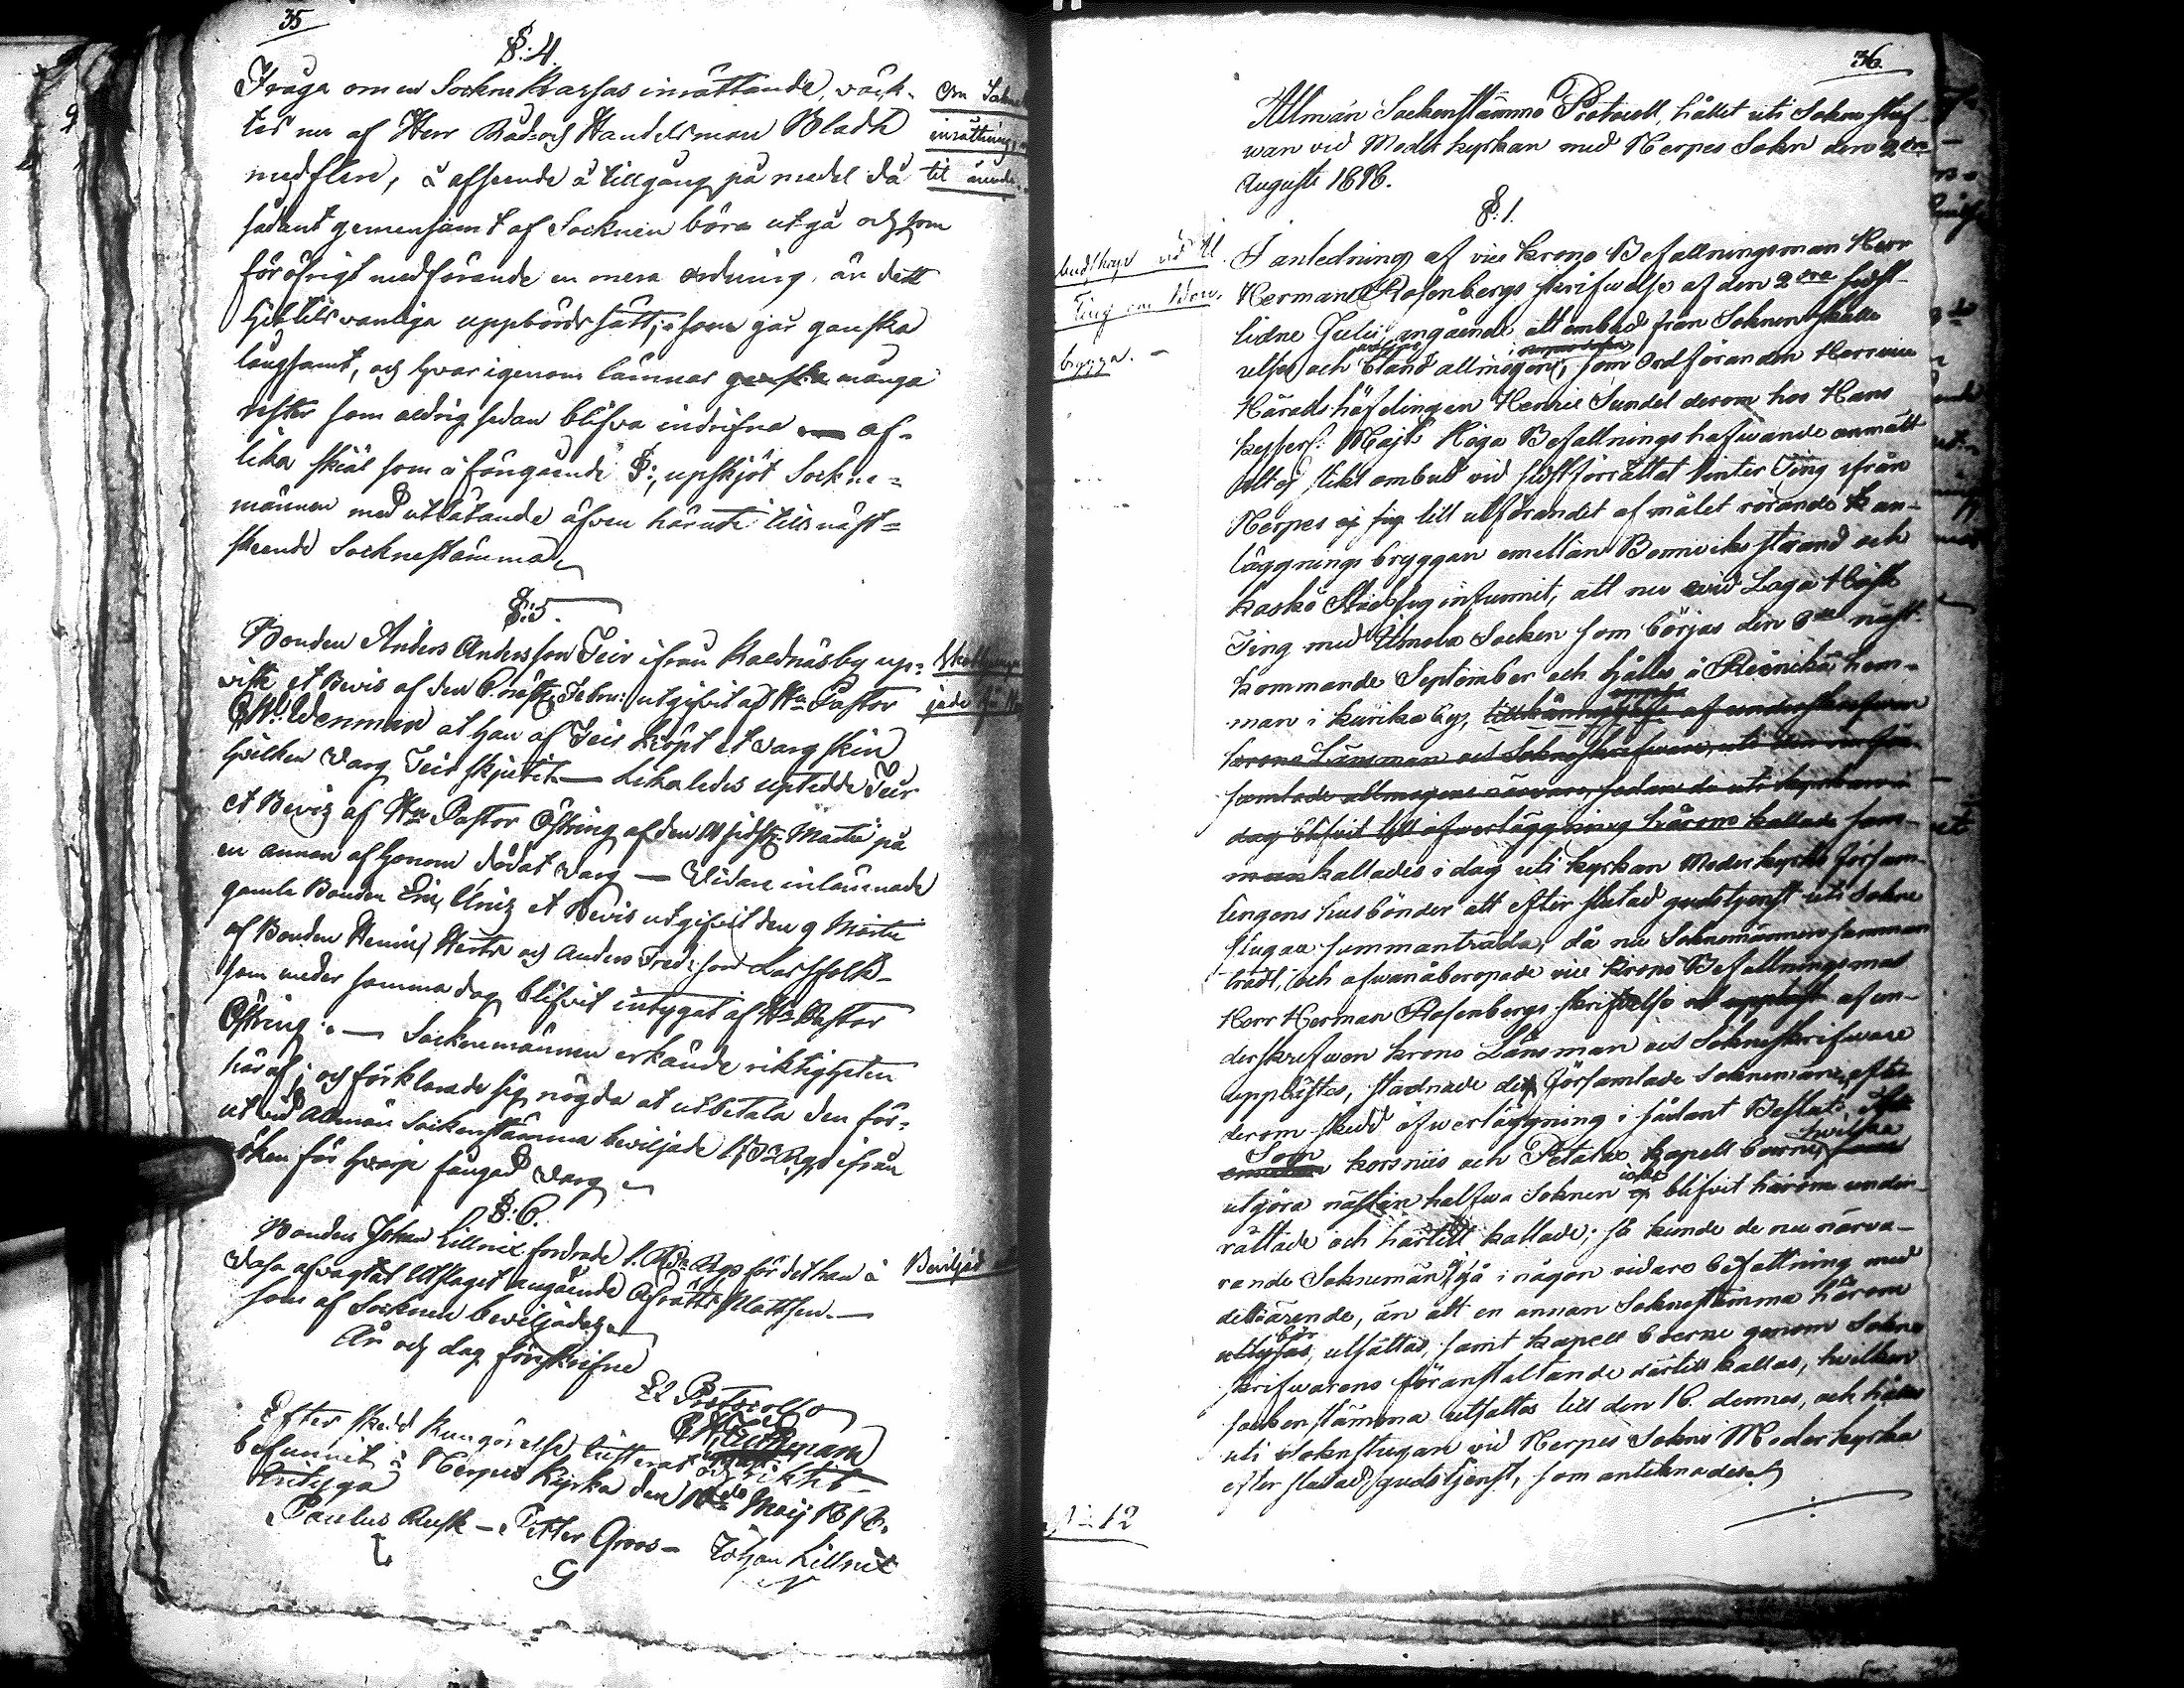 35
§: 4.
Fråga om en Sockne Kassas inrättande, väck-
tes nu af Herr Råds och Handelsman Bladh
med flere, i afseende å tillgång på medel då
sådant gemensamt af Socknen böra utgå och som
föröfrigt medförande en mera ordning, än dett
hittils vanliga uppbördssätt, som går ganska
långsamt, och hvarigenom lämnas ganska många
rester som aldrig sedan blifva indrifna af
lika skiäl som i föregående §:, upskjöt Sockne-
männen med utlåtande äfven häruti till näst-
skeende Socknestämma
Om Sokne
inrättning
til ärende
§: 5.
Bonden Anders Andersson Teir ifrån Kaldnäsby up-
viste et Bevis af den 6. näst. Febru: utgifvit af Hr. Pastor
Wenman at han af Teir köpt et Varg skin
hvilken Varg Teir skjutit. — Likaledes uptedde Teir
et Bevis af Hr Pastor Östring af den sidstl. Martii på
en annan af honom dödat Varg — Vidare inlämnade
gamle Bonden Eric Uniz et Bevis utgifvit den 9 Martii
af Bonden Henric Herts och Anders Fredr:son Larsfolk
som under samma dag blifvit intygat af Hr Pastor
Östring. — Sockenmännen erkände riktigheten
häraf, och förklarade sig nögda at utbetala den för-
ut vid Allmän Sockenstämma beviljade Rgs ifrån
öken för hvarje fångad Varg
§: 6.
Bonden Johan Lillnix fordrade 1. Rdr Rgs för det han i
Vasa afvagtat Utslaget angående Mattsson. —
som af Socknen beviljades
År och dag förskrifne
Beviljad
Ex Protocollo
Efter skedd kungörelse justerat och riktit
befunnit i Nerpes Kyrka den May 1818.
Intyga
Paulus Rusk — Petter Groos — Johan Lillnix
G
36
Allmän Sockenstämmo Protocoll, hållet uti Soknestuf-
wan vid Moder kyrkan med Nerpes Sokn den 9de
Augusti 1818.
§: 1.
I anledning af vice Krono Befallningsman Herr
Herman Rosenbergs skrifwelse af den 2dra sidst-
lidne Julii angående att ombud från Soknen skulle
utses och bland allmogen, som Ordföranden Herr
Häradshöfdingen Henric Sundel derom hos Hans
Kejserl: Majts Höga Befallningshafwande anmält
att ej slikt ombud vid sistförrättat Vinter Ting ifrån
Nerpes sig till utförandet af målet rörande an-
läggnings bryggan emellan Bonnviks strand och
Kaskö Stad sig infunnit, att nu wid Laga Höste
Ting med Ilmola Socken som börjas den näst-
kommande September och hålles å Reinikä hem-
man i Kurika by, tillkännagifvit af underskrefwen
Krono Länsman och Sokneskrifware, uti den för-
samlade allmogens närvaro, sedan de uti kyrkan i
dag blifvit till öfwerläggning härom kallade sam-
man kallades i dag uti kyrkan Moder kyrko försam-
lingens husbönder att efter slutad gudstjenst uti Sokne
stugan sammanträda, då nu Soknemännen samman
trädt, och ofwanåberopade vice Krono Befallningsmans
Herr Herman Rosenbergs skrifvelse upplest af un-
derskrefwen Krono Länsman och Sokneskrifware
upplästes, stadnade de församlade Soknemän, efter
derom skedd öfwerläggning i sådant Beslut: Att
Som Korsnäs och Petalax kapell boerne, hwilka
utgöra nästan halfwa Soknen icke blifvit härom under-
rättade och härtill kallade, så kunde de nu närva-
rande Soknemän ej gå i någon vidare befattning med
detta ärende, än att en annan Soknestämma härom
bör utsättas, samt kapell boerne genom Sokne
skrifwarens föranstaltande därtill kallas, hwilken
sockenstämma utsattes till den 16. dennes, och hålles
uti Soknestugan vid Nerpes Sokne Moder kyrka
efter slutad gudstjenst, som antecknades.
Ting om Bon
brygga. —
12